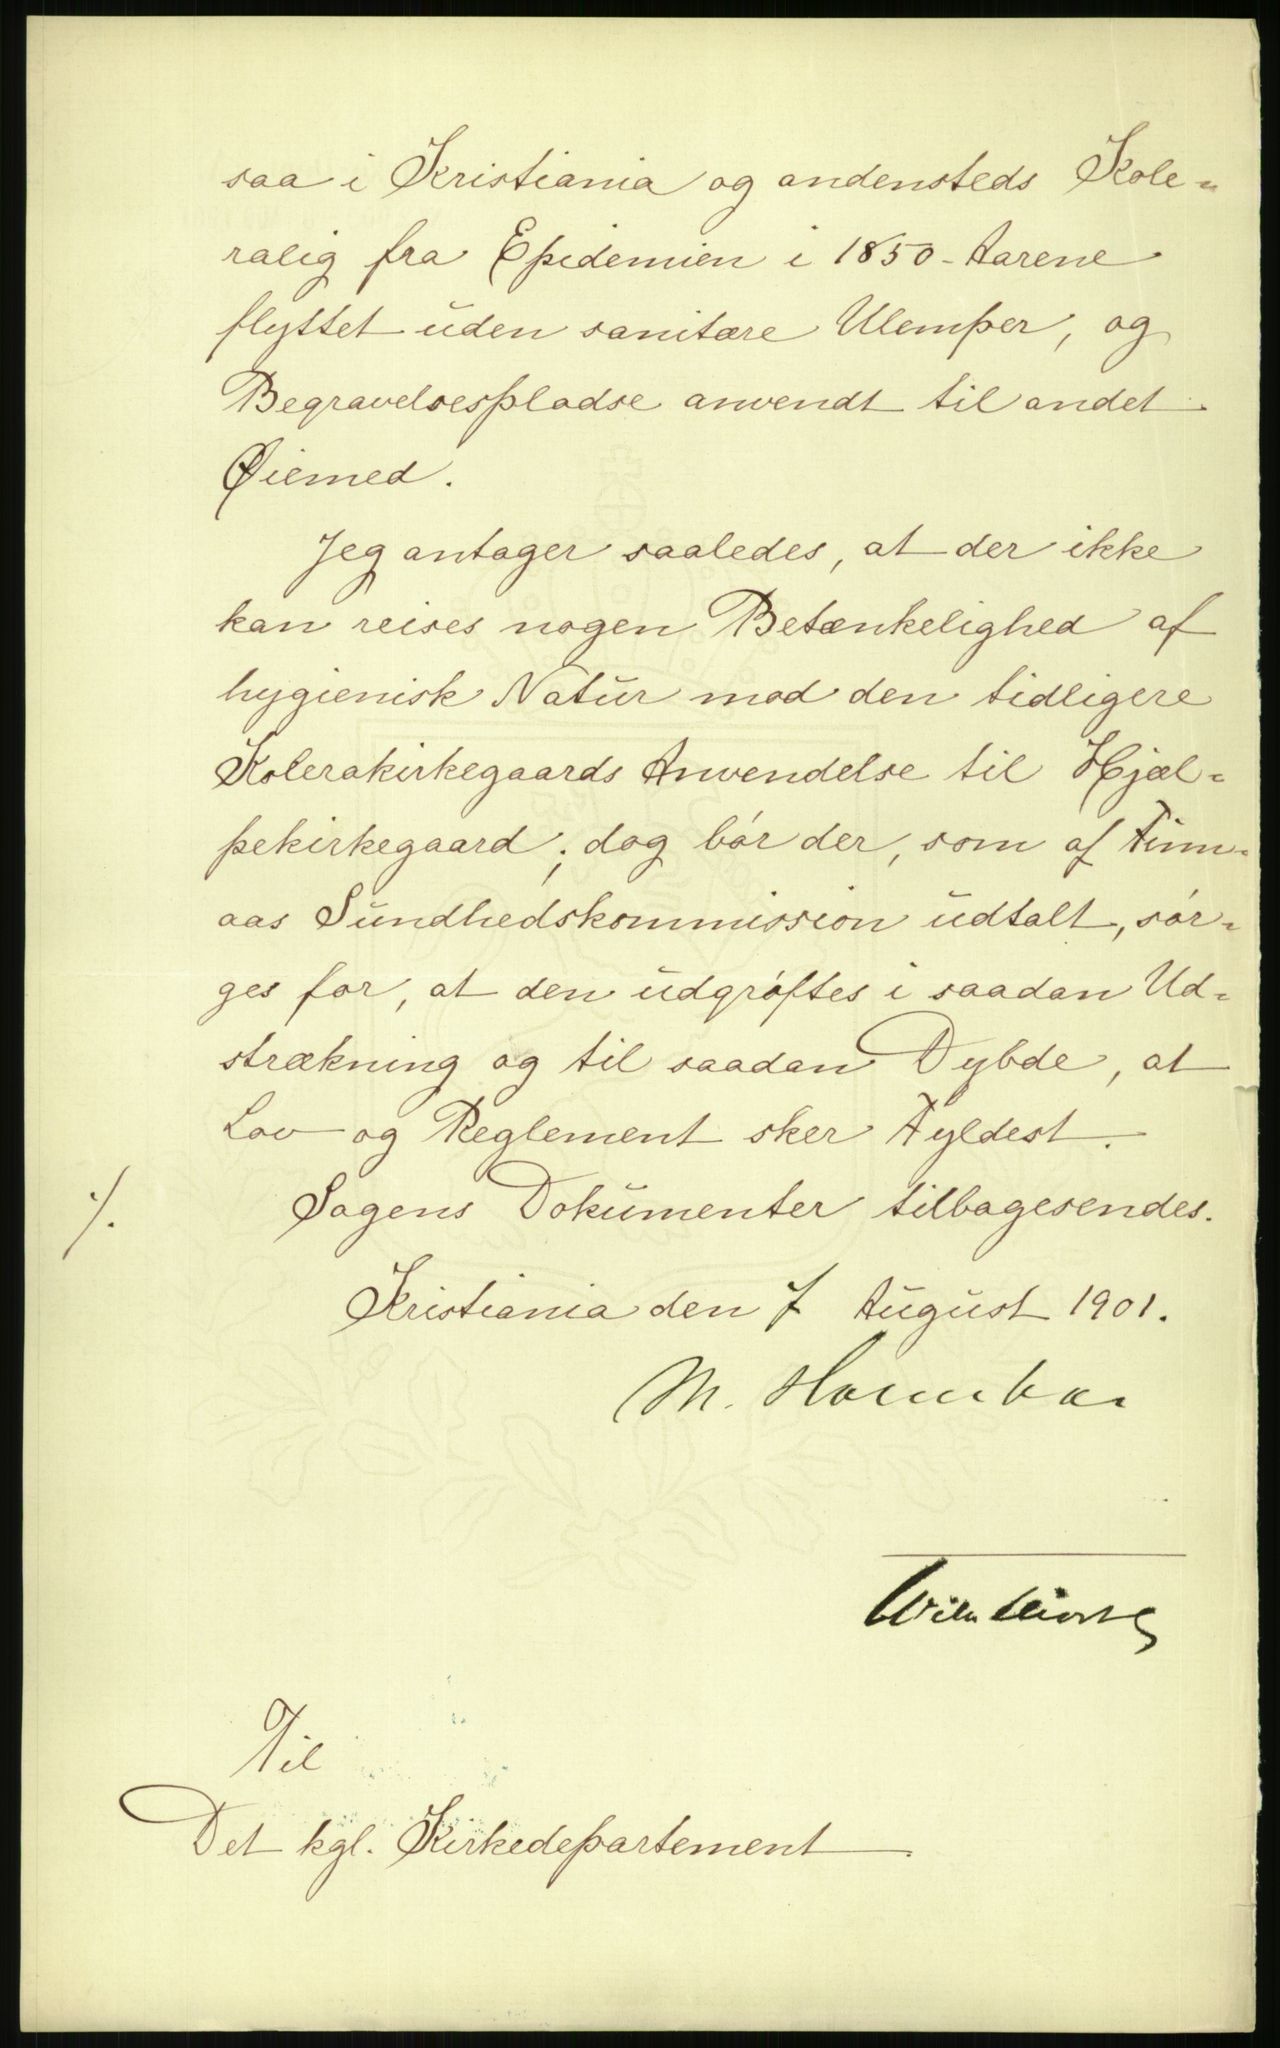 saa i Kristiania og andensteds Kole-
ralig fra Epidemien i 1850-Aarene
flyttet uden sanitære Ulemper, og
Begravelsespladse anvendt til andet
Øiemed.
Jeg antager saaledes, at der ikke
kan reises nogen Betænkelighed af
hygienisk Natur mod den tidligere
Kolerakirkegaards Anvendelse til Hjæl-
pekirkegaard; dog bör der, som af Finn-
aas Sundhedskommission udtalt, sör-
ges for, at den udgröftes i saadan Ud-
strækning og til saadan Dybde, at
Lov og Reglement sker Fyldest.
./. Sagens Dokumenter tilbagesendes.
Kristiania den 7 August 1901.
M. Holmboe
Til
Det kgl. Kirkedepartement.